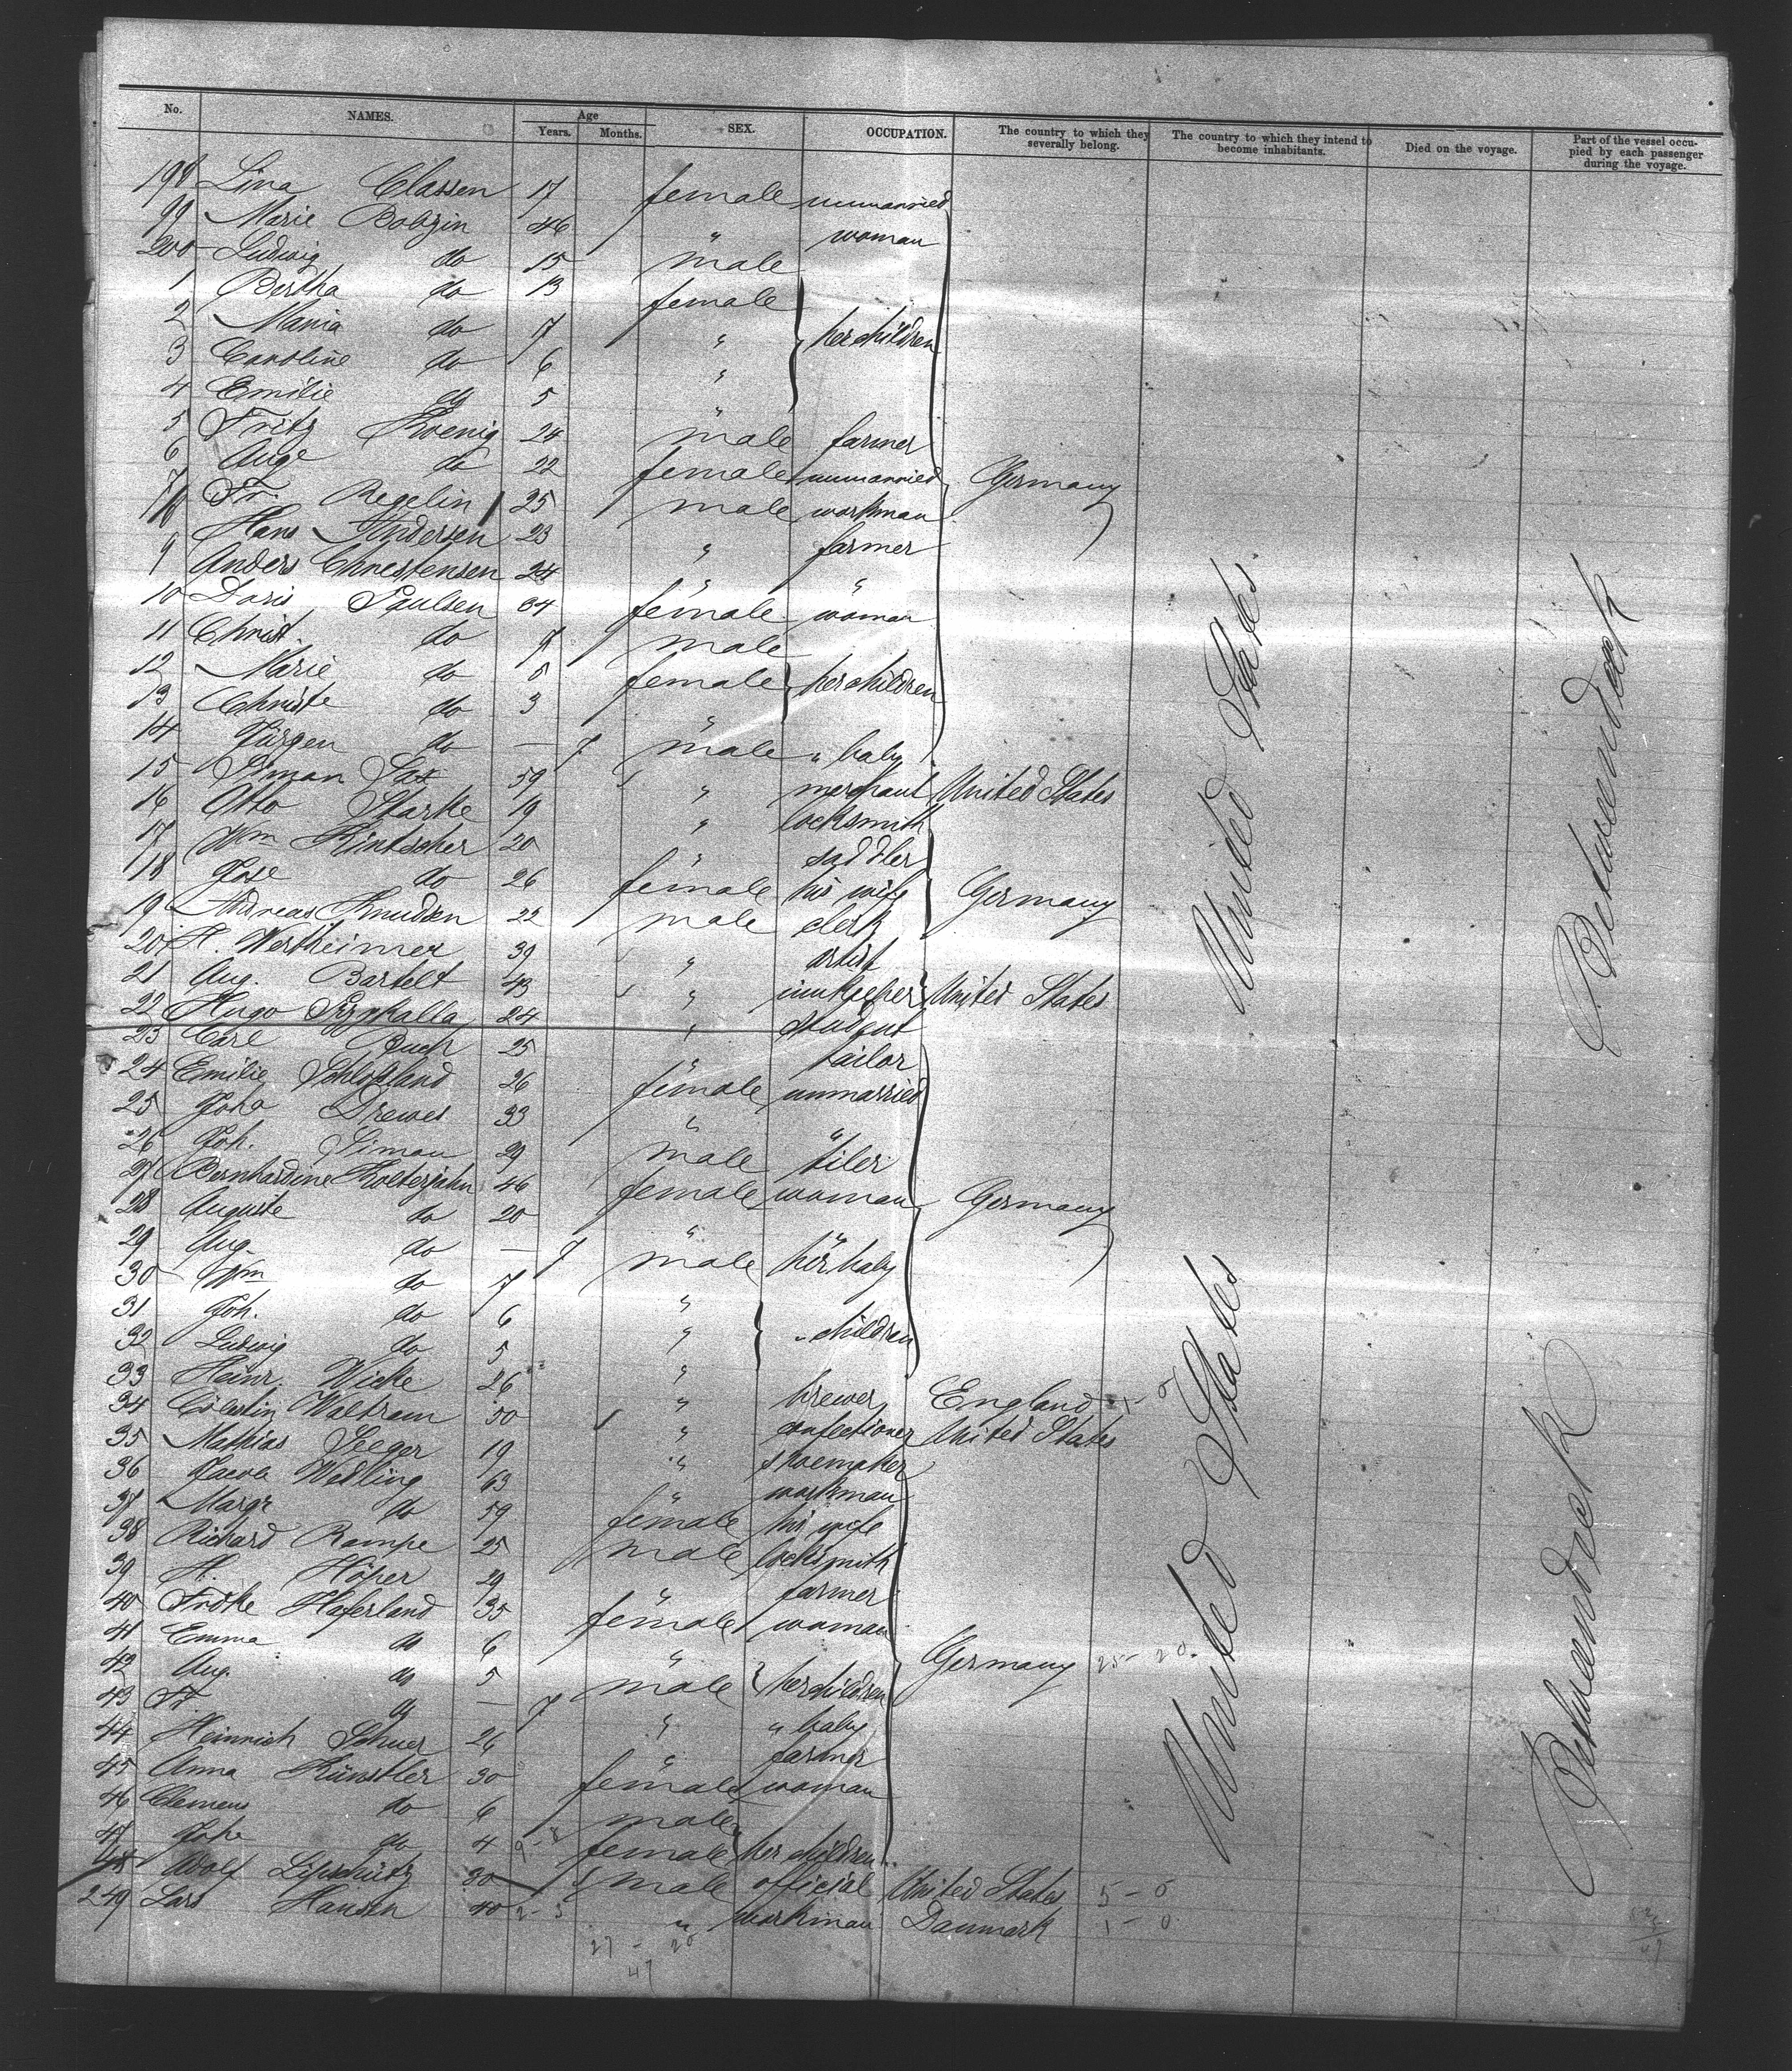 No. NAMES. Age Years. Months. SEX. OCCUPATION. The country to which they severally belong. The country to which they intend to become inhabitants. Died on the voyage. Part of the vessel occupied by each passenger during the voyage.
198 Lina Classen 17 female unmarried
99 Marie Bobzin 46 " woman
200 Ludwig do 15 male
1 Bertha do 13 female
2 Maria do 7 " her children
3 Caroline do 6 "
4 Emilie do 5 "
5 Fritz Koenig 24 male farmer
6 Auge do 22 female unmarried Germany
7 Fr. Regelin 25 male workman
Hans Andersen 23 " farmer
9 Anders Chrestensen 24 " "
10 Doris Paulsen 34 female woman
11 Christ. do 7 male
12 Marie do 5 female her children
13 Christe do 3 "
14 Jürgen do — 7 male " baby
15 Siman Sax 59 " merchant United States
16 Otto Starke 19 " locksmith
17 Wm Kintscher 20 " saddler
18 do 26 female his wife Germany
19 Andreas Knudsen 22 male clerk
20 H. Wertheimer 39 " artist
21 Aug. Bartelt 43 " innkeeper United States
22 Hugo 24 " student
23 Carl Buch 25 tailor
24 Emilie 26 female unmarried
25 Joha Drewes 33 " "
26 Joh. Siman 29 male tiler
27 Bernhardine Holterjahn 46 female woman Germany
28 Auguste do 20 " "
29 Aug. do — 7 male her baby
30 Wm do 7 "
31 Joh. do 6 " " children
32 Ludwig do 5 "
33 Heinr. Wicke 26 " brewer England 1 - 0
34 Cölestin Waltram 50 " confectioner United States
35 Mathias Seeger 19 " shoemaker
36 Jacob Wedling 63 " workman
37 Margr do 59 female his wife
38 Richard Rampe 25 male locksmith
39 H. Höper 29 " farmer
40 Fridke Haferland 35 female woman
41 Emma do 6 " Germany 25 - 20.
42 Aug. do 5 male her children
43 Fr. do — 7 " " baby
44 Heinrich Schuer 26 " farmer
45 Anna Künstler 30 female woman
46 Clemens do 6 male
47 Johe do 4 female her children
48 Adolf Lipschütz 30 male official United States 5 - 0
249 Lars Hansen 40 " workman Danmark 1 - 0.
27 - 20
47
United States.
United States
Betweendeck
Betweendeck
47